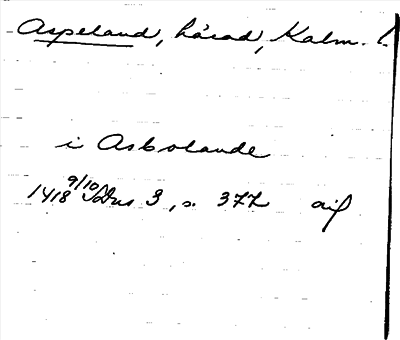 Aspeland, härad, Kalm. l.
i Asbolande
1418 9/10 SDns 3, s. 377 aif